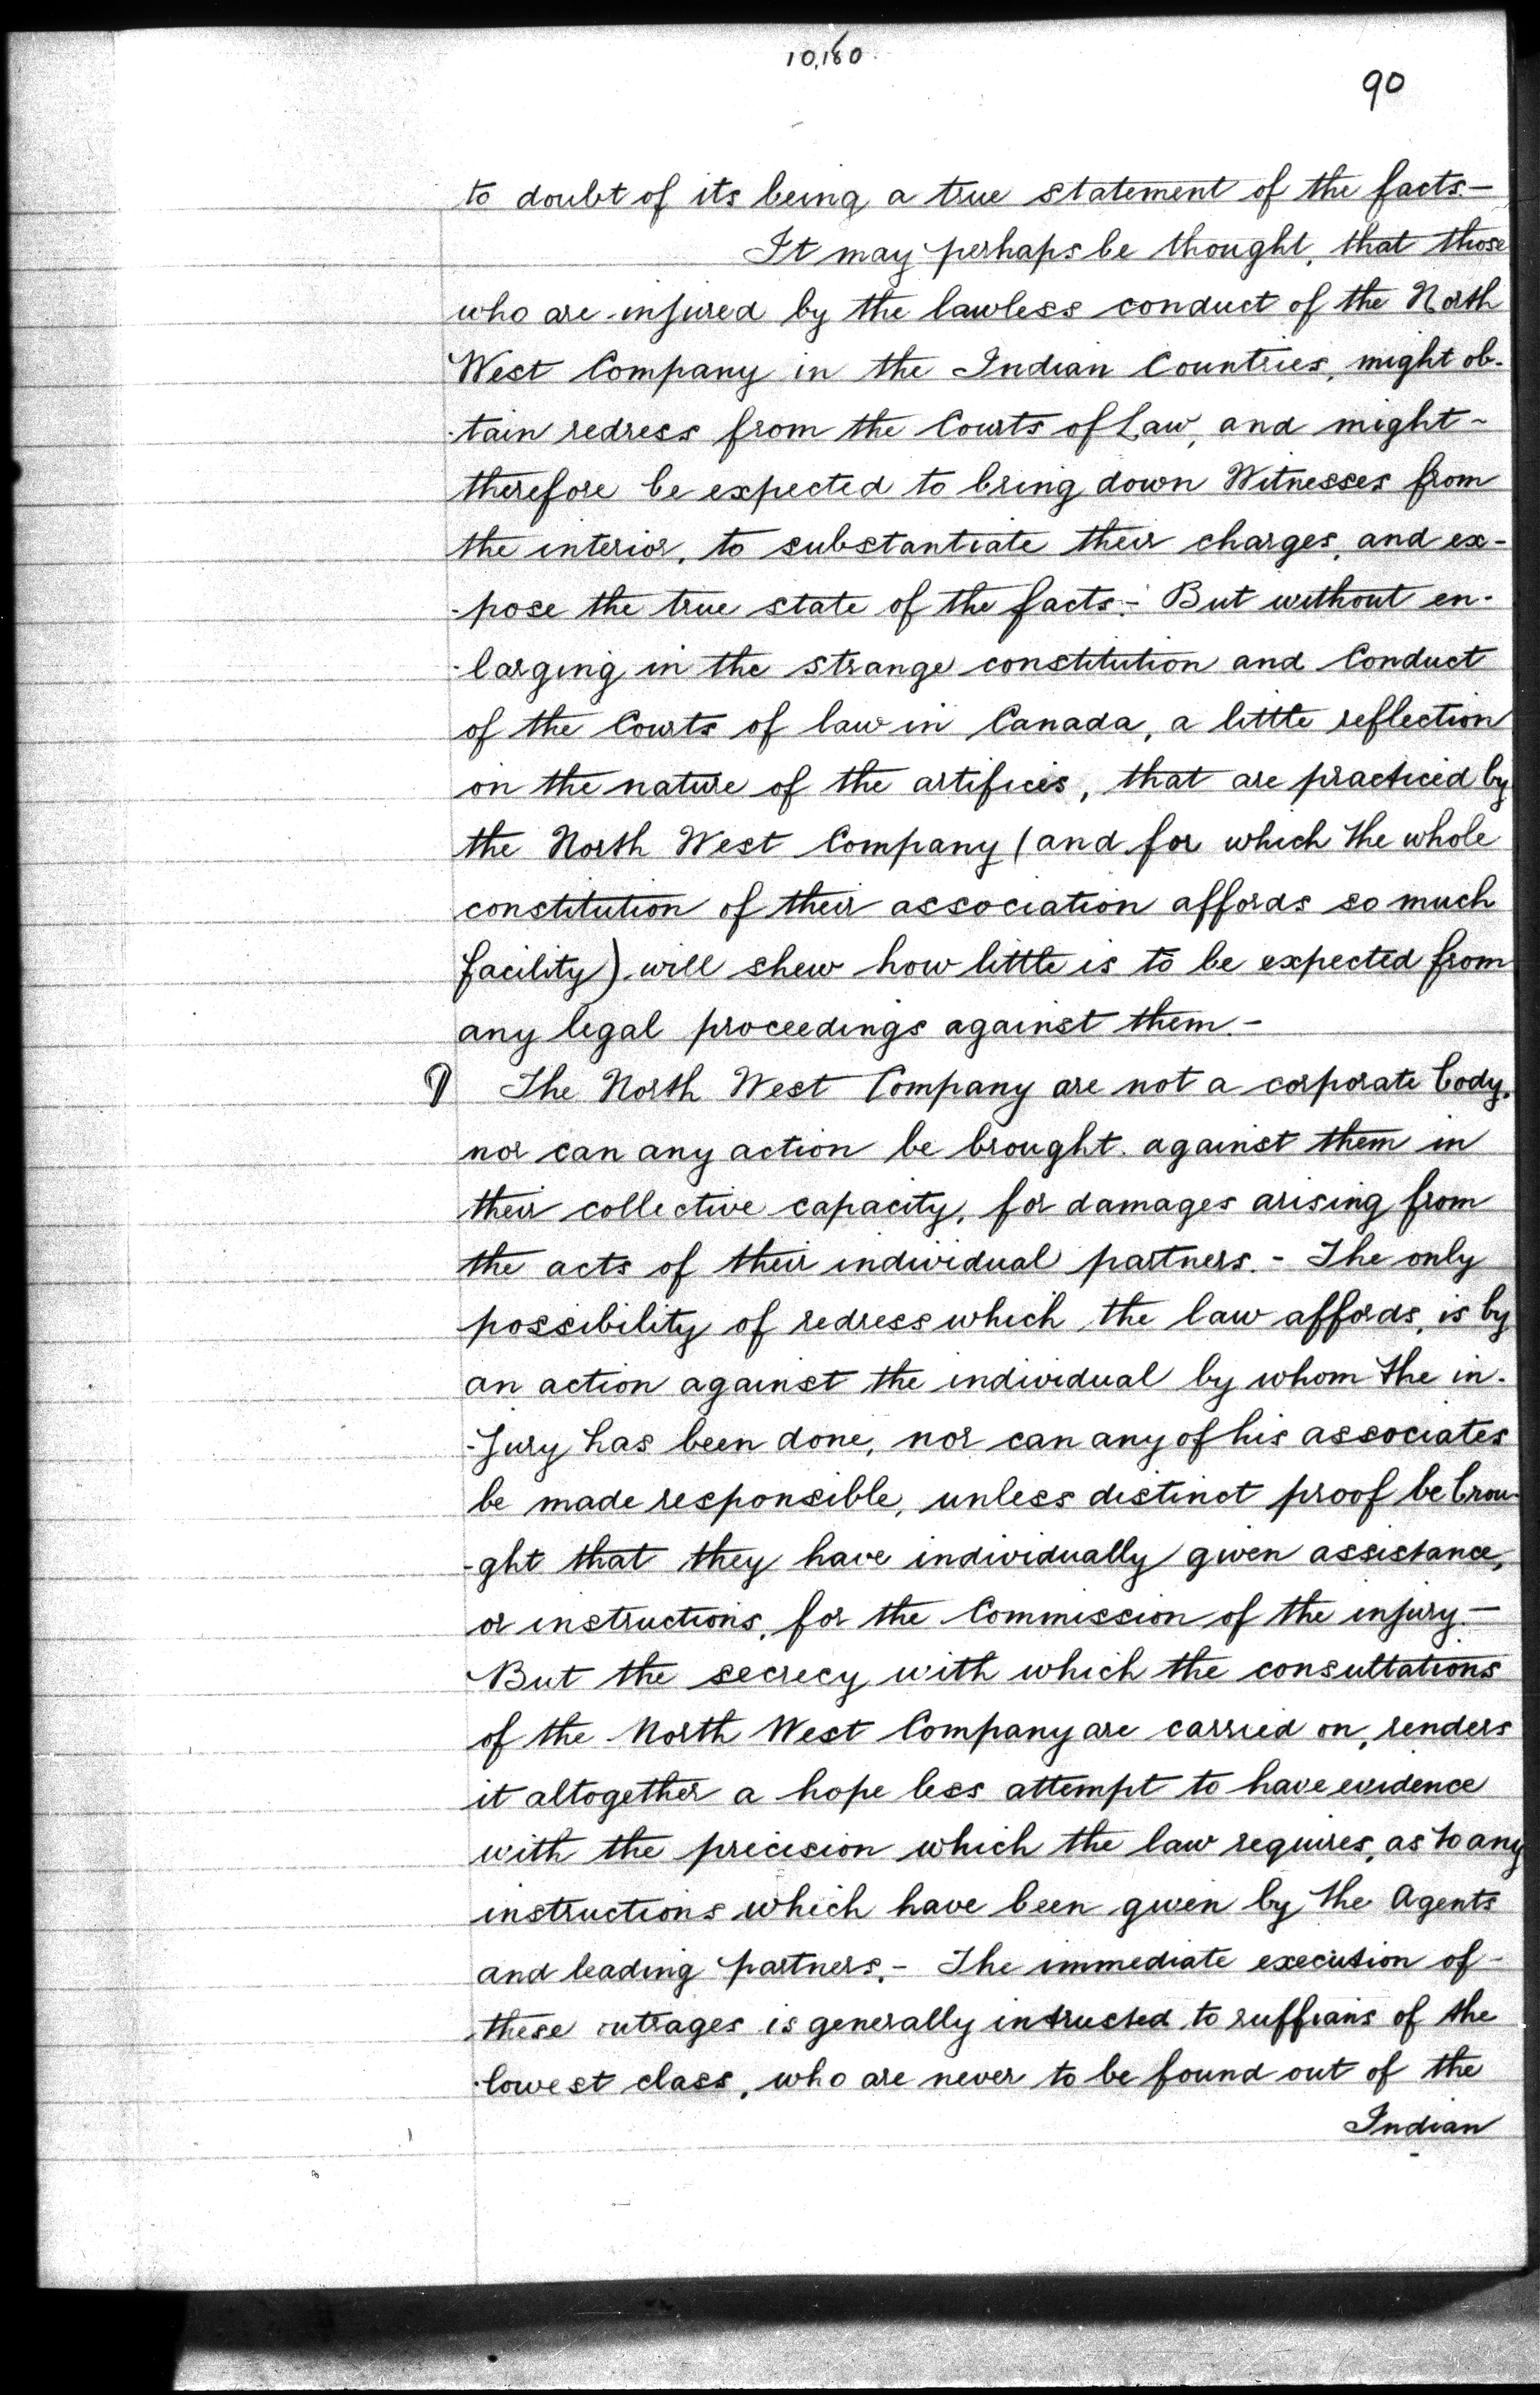 10,180
90
to doubt of its being a true statement of the facts.—
It may perhaps be thought, that those
who are injured by the lawless conduct of the North
West Company in the Indian Countries, might ob-
-tain redress from the Courts of Law, and might -
therefore be expected to bring down Witnesses from
the interior, to substantiate their charges, and ex-
-pose the true state of the facts.- But without en-
-larging in the strange constitution and Conduct
of the Courts of law in Canada, a little reflection
on the nature of the artifices, that are practiced by
the North West Company (and for which the whole
constitution of their association affords so much
facility) will shew how little is to be expected from
any legal proceedings against them -
¶ The North West Company are not a corporate body,
nor can any action be brought against them in
their collective capacity, for damages arising from
the acts of their individual partners. - The only
possibility of redress which the law affords, is by
an action against the individual by whom the in-
-jury has been done, nor can any of his associates
be made responsible, unless distinct proof be brou-
-ght that they have individually given assistance,
or instructions, for the Commission of the injury.—
But the secrecy with which the consultations
of the North West Company are carried on, renders
it altogether a hope less attempt to have evidence
with the precision which the law requires, as to any
instructions which have been given by the Agents
and leading partners. - The immediate execution of -
these outrages is generally intrusted to ruffians of the
lowest class, who are never to be found out of the
Indian